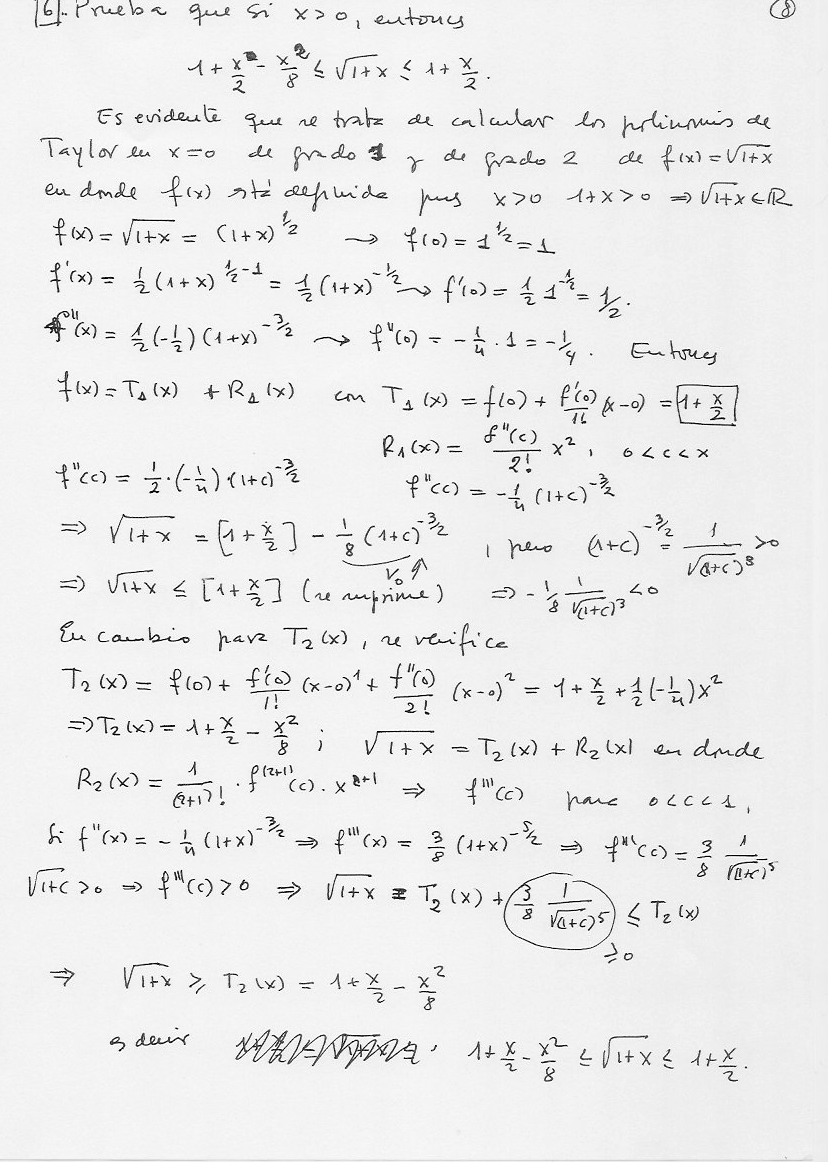 6. Prueba que si x>0, entonces
8
1 + x/2 - x²/8 ≤ √(1+x) ≤ 1 + x/2.
Es evidente que se trata de calcular los polinomios de
Taylor en x=0 de grado 1 y de grado 2 de f(x) = √(1+x)
en donde f(x) está definida pues x>0 1+x>0 ⇒ √(1+x) ∈ ℝ
f(x) = √(1+x) = (1+x)^(1/2) → f(0) = 1^(1/2) = 1
f'(x) = 1/2 (1+x)^(1/2 - 1) = 1/2 (1+x)^(-1/2) → f'(0) = 1/2 1^(-1/2) = 1/2.
f''(x) = 1/2 (-1/2) (1+x)^(-3/2) → f''(0) = -1/4 · 1 = -1/4. Entonces
f(x) = T₁(x) + R₁(x) con T₁(x) = f(0) + f'(0)/1! (x-0) = 1 + x/2
R₁(x) = f''(c)/2! x², 0<c<x
f''(c) = 1/2 · (-1/4) (1+c)^(-3/2) f''(c) = -1/4 (1+c)^(-3/2)
⇒ √(1+x) = [1 + x/2] - 1/8 (1+c)^(-3/2), pero (1+c)^(-3/2) = 1/√(1+c)³ > 0
⇒ √(1+x) ≤ [1 + x/2] (se suprime) ⇒ -1/8 1/√(1+c)³ < 0
En cambio para T₂(x), se verifica
T₂(x) = f(0) + f'(0)/1! (x-0)¹ + f''(0)/2! (x-0)² = 1 + x/2 + 1/2 (-1/4) x²
⇒ T₂(x) = 1 + x/2 - x²/8 ; √(1+x) = T₂(x) + R₂(x) en donde
R₂(x) = 1/(2+1)! · f^(2+1)(c) · x^(2+1) ⇒ f'''(c) para 0<c<1,
Si f''(x) = -1/4 (1+x)^(-3/2) ⇒ f'''(x) = 3/8 (1+x)^(-5/2) ⇒ f'''(c) = 3/8 1/√(1+c)⁵
√(1+c) > 0 ⇒ f'''(c) > 0 ⇒ √(1+x) = T₂(x) + 3/8 1/√(1+c)⁵ ≤ T₂(x)
≥ 0
⇒ √(1+x) ≥ T₂(x) = 1 + x/2 - x²/8
es decir 1 + x/2 - x²/8 ≤ √(1+x) ≤ 1 + x/2.